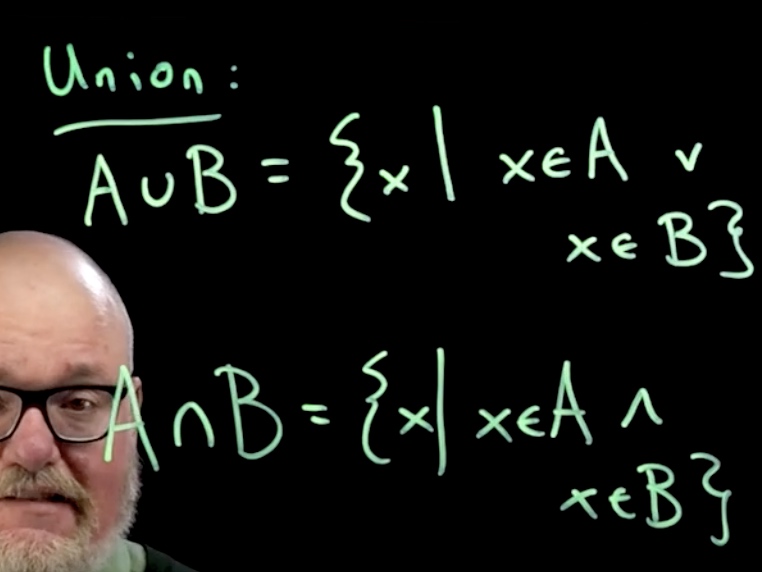 Union:
A∪B = {x | x∈A ∨
x∈B}
A∩B = {x | x∈A ∧
x∈B}